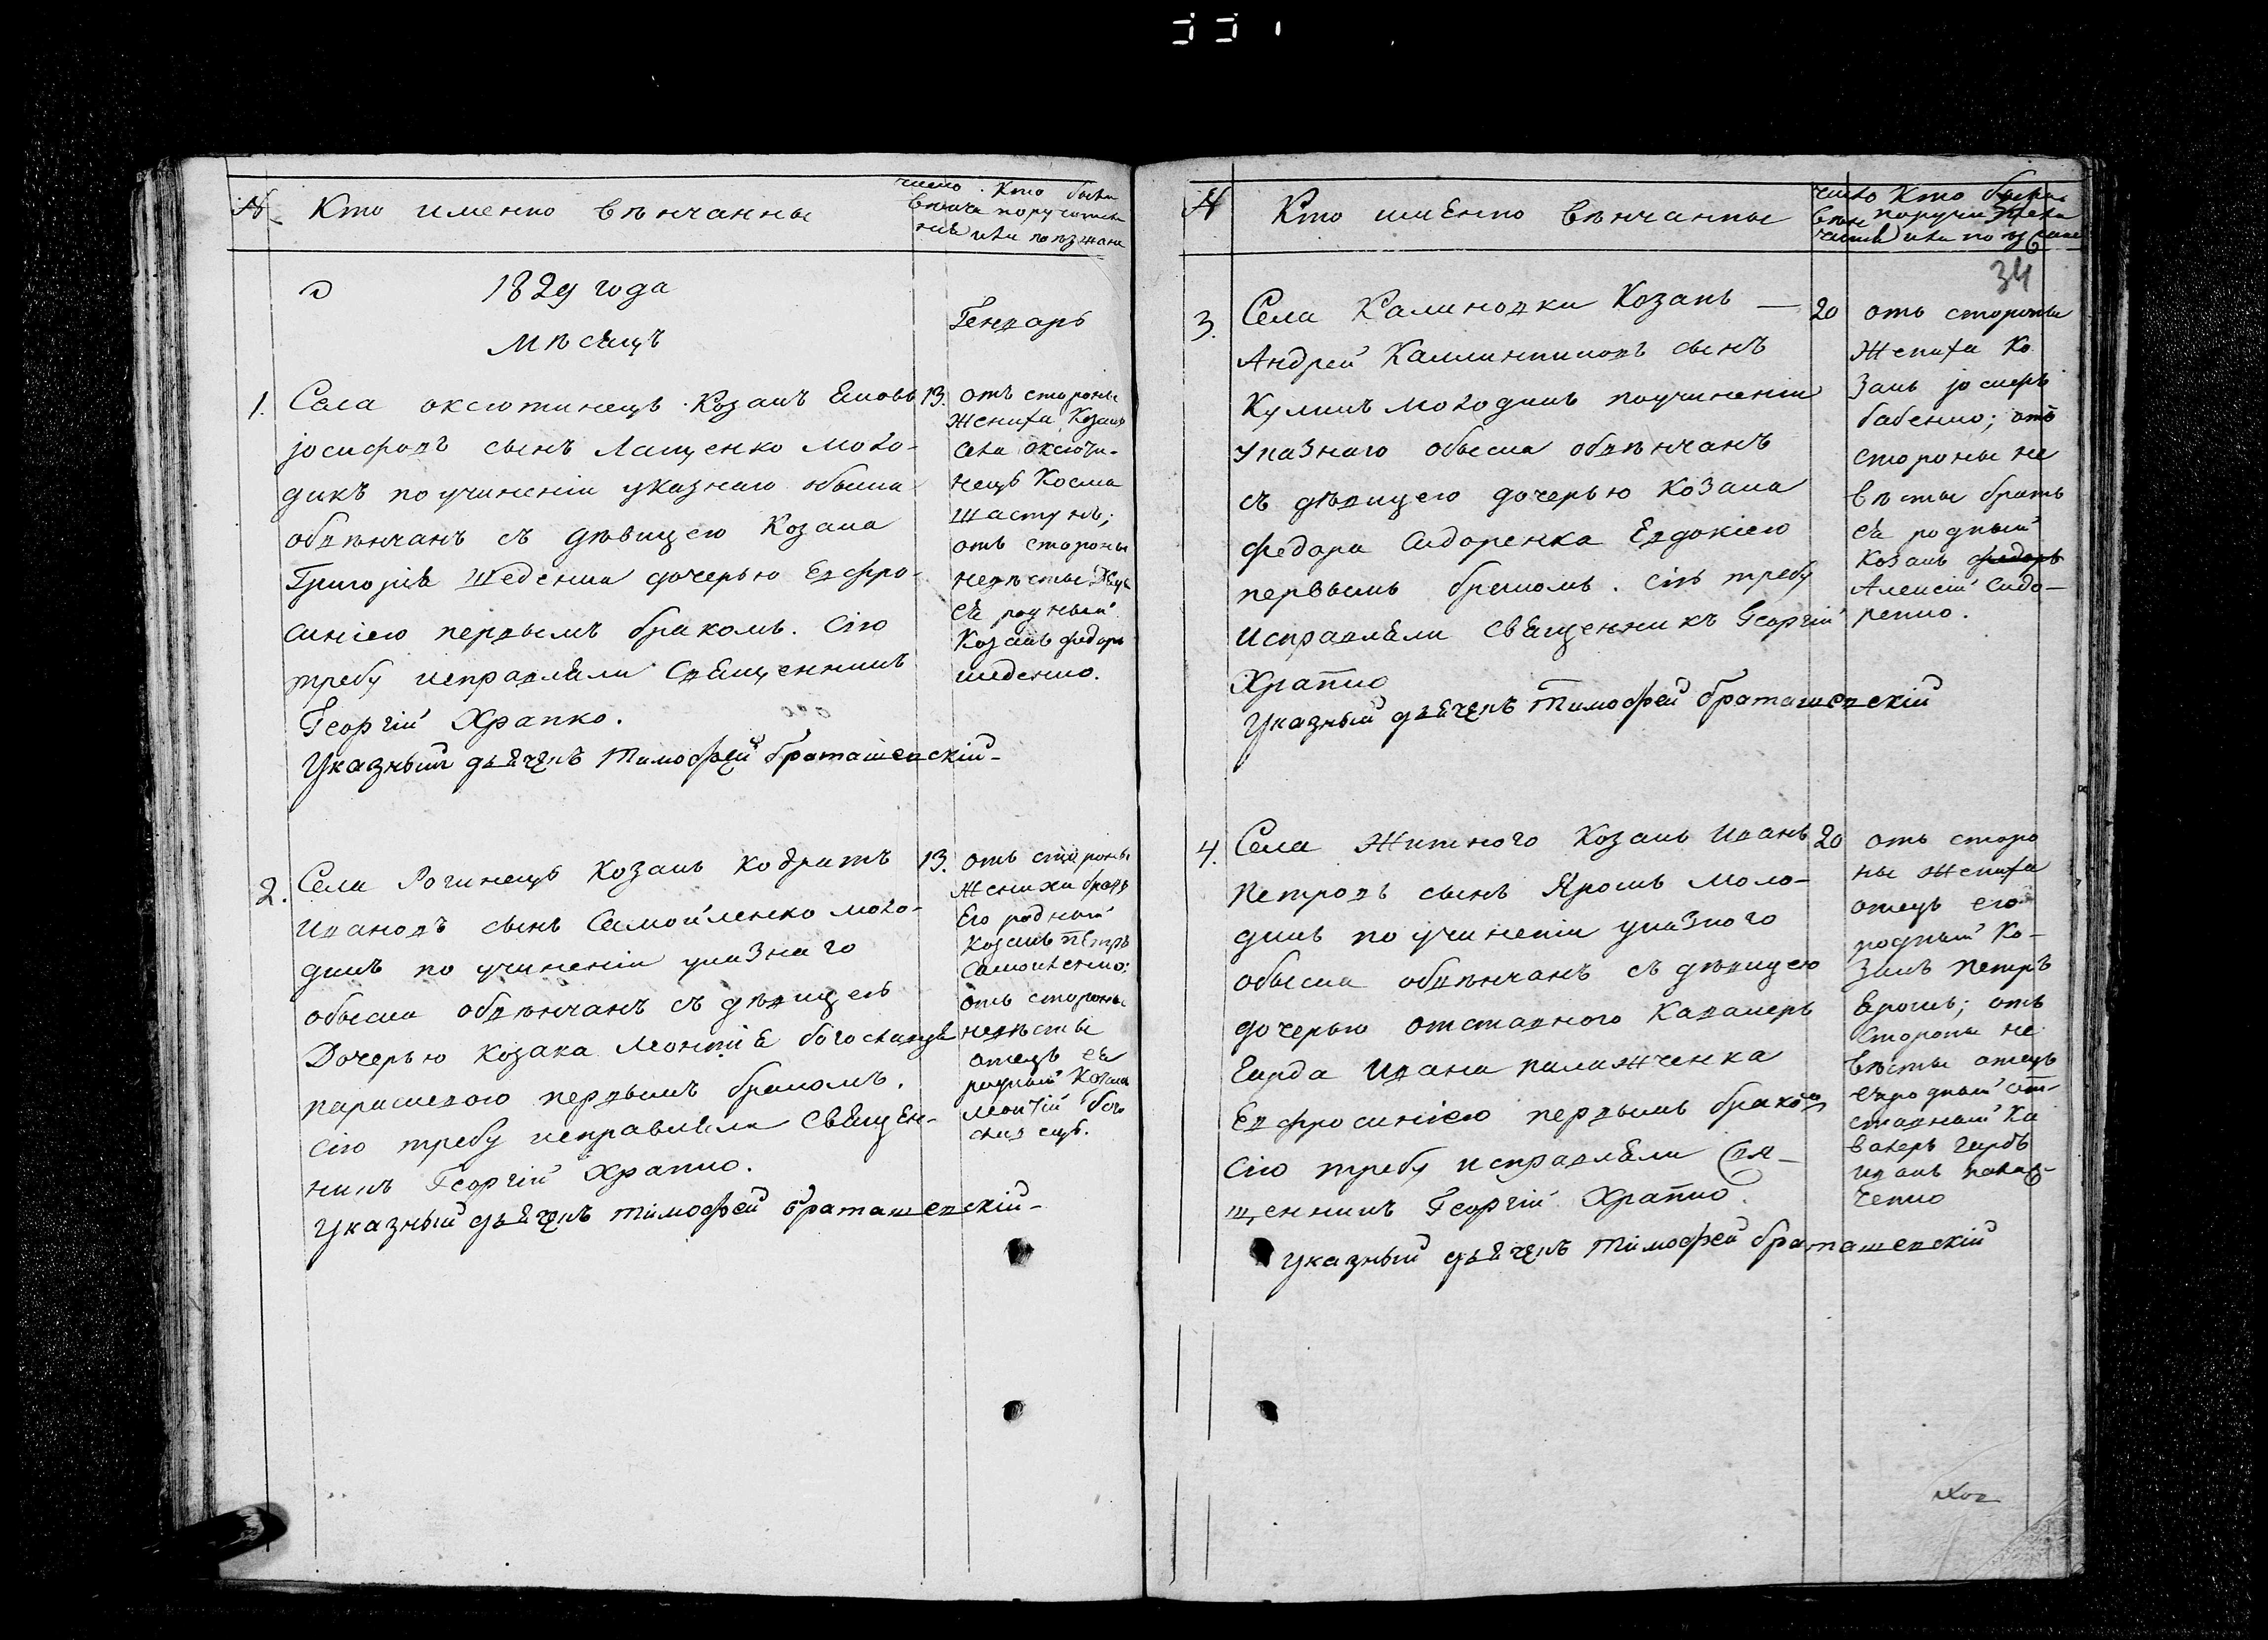 №
Кто именно вѣнчанны
число вѣнча ніѣ
Кто были поручители или поезжане
1829 года
мѣсяцъ
Генварь
1.
Села оксютинецъ Козакъ Яковъ
јосифовъ сынъ Лащенко моло-
дикъ по учиненіи указнаго обыска
обвѣнчанъ съ дѣвицею Козака
Григоріѧ Шеденка дочерью Евфро-
синіею первымъ бракомъ. Сію
требу исправляли Священникъ
Георгій Храпко.
Указный дьячекъ Тимофей браташевскій
13.
отъ стороны
жениха Козакъ
села оксюти-
нецъ Косма
шастунъ;
отъ стороны
невѣсты
еѧ родный
Козакъ федоръ
шеденко.
2.
Села Рогинецъ Козакъ кодратъ
ивановъ сынъ Самойленко моло-
дикъ по учиненіи указнаго
обыска обвѣнчанъ съ дѣвицею
Дочерью козака Леонтіѧ богославца
параскевою первымъ бракомъ.
Сію требу исправляли Священ-
никъ Георгій Храпко.
Указный дьячекъ Тимофей браташевскій
13.
отъ стороны
жениха братъ
его родный
козакъ петръ
самойленко;
отъ стороны
невѣсты
отецъ еѧ
родный Козакъ
леонтій бого
славецъ.
№
Кто именно вѣнчанны
число вѣн чаніѧ
Кто были поручители или поезжане
34
3.
Села Калиновки Козакъ —
Андрей Каллиниковъ сынъ
Куликъ молодикъ поучиненіи
указнаго обыска обвѣнчанъ
съ дѣвицею дочерью козака
федора Сидоренка Евдокіею
первымъ бракомъ. Сію требу
исправляли священникъ Георгій
Храпко
Указный дьячекъ Тимофей браташевскій
20
отъ стороны
жениха Ко
закъ јосифъ
бабенко; отъ
стороны не
вѣсты братъ
еѧ родный
козакъ федоръ
Алексій Сидо-
ренко.
4.
Села Житного Козакъ Иванъ
петровъ сынъ Ярошъ моло-
дикъ по учиненіи указного
обыска обвѣнчанъ съ дѣвицею
дочерью отставного Кавалер
Гарда Ивана палажченка
Евфросиніею первымъ бракомъ
Сію требу исправляли Свя-
щенникъ Георгій Храпко.
указный дьячекъ Тимофей браташевскій
20
отъ сторо
ны жениха
отецъ его
родный Ко-
закъ петръ
Ярошъ; отъ
Стороны не
вѣсты отецъ
еѧродный от-
ставный Ка
валеръ гардъ
иванъ палаж-
ченко